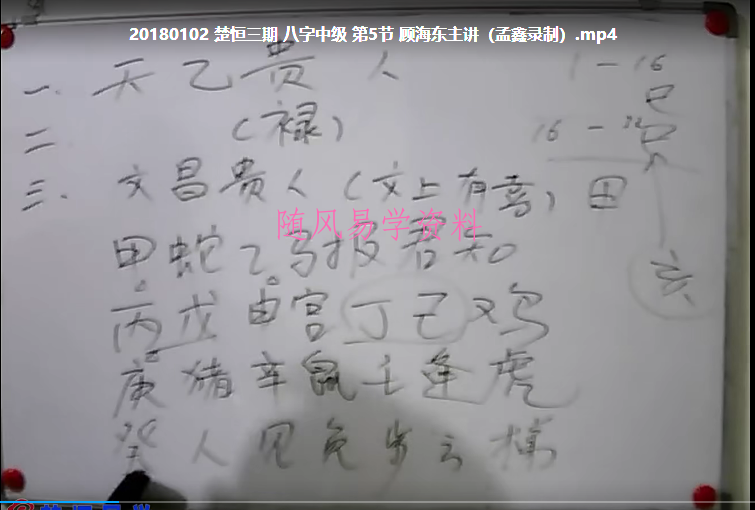 20180102 楚恒三期 八字中级 第5节 顾海东主讲（孟鑫录制）.mp4
一、天乙贵人
1-16
二（禄）
16-32
三、文昌贵人（文上有喜）田
随风易学资料
甲蛇乙马报君知
亥
丙戊申宫丁己鸡
庚猪辛鼠壬逢虎
癸人见兔步云梯